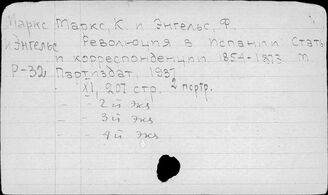 Маркс Маркс, К. и Энгельс, Ф.
и Энгельс Революция в Испании Статьи
Р-32 и корреспонденции 1854-1873 м.
Партиздат, 1937
XI, 207 стр. 2 портр.
- - 2й экз
- - 3й экз
- - 4й экз